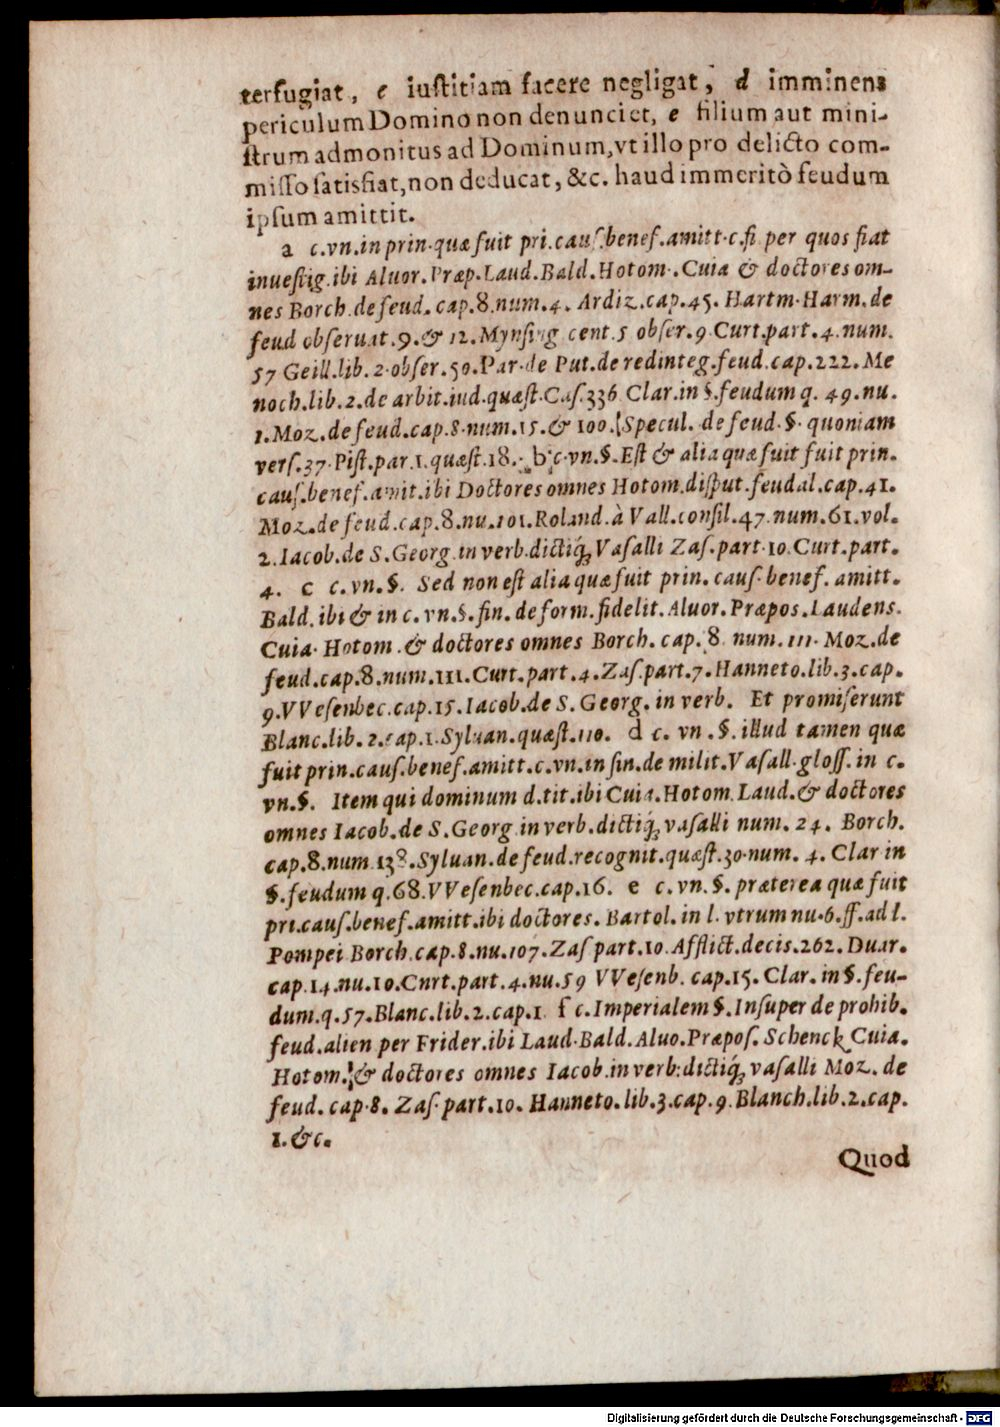 terfugiat, e iuſtitiam facere negligat, d imminens
periculum Domino non denunciet, e filium aut mini-
ſtrum admonitus ad Dominum, vt illo pro delicto com-
miſſo ſatisfiat, non deducat, &c. haud immeritò feudum
ipſum amittit.
a c.vn.in prin.quæ fuit pri.cauſ.benef.amitt.c.ſi per quos fiat
inueſtig.ibi Aluor.Præp.Laud.Bald.Hotom.Cuia & doctores om-
nes Borch.de feud.cap.8.num.4. Ardiz.cap.45. Hartm.Harm.de
feud obſeruat.9.& 12.Mynſing cent.5 obſer.9.Curt.part.4.num.
57 Geill.lib.2.obſer.50.Par.de Put.de redinteg.feud.cap.222.Me
noch.lib.2.de arbit.iud.quæſt.Caſ.336 Clar.in §.feudum q. 49.nu.
1.Moz.de feud.cap.8.num.15.& 100. Specul. de feud.§. quoniam
verſ.37.Piſt.par.1.quæſt.18. b c.vn.§.Eſt & alia quæ fuit fuit prin.
cauſ.benef.amit.ibi Doctores omnes Hotom.diſput.feudal.cap.41.
Moz.de feud.cap.8.nu.101.Roland.à Vall.conſil.47.num.61.vol.
2.Iacob.de S.Georg.in verb.dictiq́; Vaſalli Zaſ.part.10.Curt.part.
4. c c.vn.§. Sed non eſt alia quæ fuit prin. cauſ.benef. amitt.
Bald.ibi & in c.vn.§.fin.de form.fidelit.Aluor.Præpos.Laudens.
Cuia. Hotom.& doctores omnes Borch. cap. 8. num.111. Moz.de
feud.cap.8.num.111.Curt.part.4.Zaſ.part.7.Hanneto.lib.3.cap.
9.VVeſenbec.cap.15.Iacob.de S.Georg.in verb. Et promiſerunt
Blanc.lib.2.cap.1.Syluan.quæſt.110. d c. vn.§. illud tamen quæ
fuit prin.cauſ.benef.amitt.c.vn.in fin.de milit.Vaſall.gloſſ. in c.
vn.§. Item qui dominum d.tit.ibi Cuia.Hotom.Laud.& doctores
omnes Iacob.de S.Georg.in verb.dictiq́; vaſalli num. 24. Borch.
cap.8.num.138.Syluan.de feud.recognit.quæſt.30.num. 4. Clar in
§.feudum q.68.VVeſenbec.cap.16. e c.vn.§. præterea quæ fuit
pri.cauſ.benef.amitt.ibi doctores. Bartol.in l. vtrum nu.6.ff.ad l.
Pompei Borch.cap.8.nu.107.Zaſ part.10.Afflict.decis.262.Duar.
cap.14.nu.10.Cnrt.part.4.nu.59 VVeſenb. cap.15. Clar. in §.feu-
dum.q.57.Blanc.lib.2.cap.1. f c.Imperialem §.Inſuper de prohib.
feud.alien per Frider.ibi Laud.Bald.Aluo.Præpoſ.Schenck Cuia.
Hotom. & doctores omnes Iacob.in verb:dictiq́; vaſalli Moz. de
feud. cap.8. Zaſ.part.10. Hanneto.lib.3.cap.9.Blanch.lib.2.cap.
1.&c.
Quod
Digitalisierung gefördert durch die Deutsche Forschungsgemeinschaft - DFG